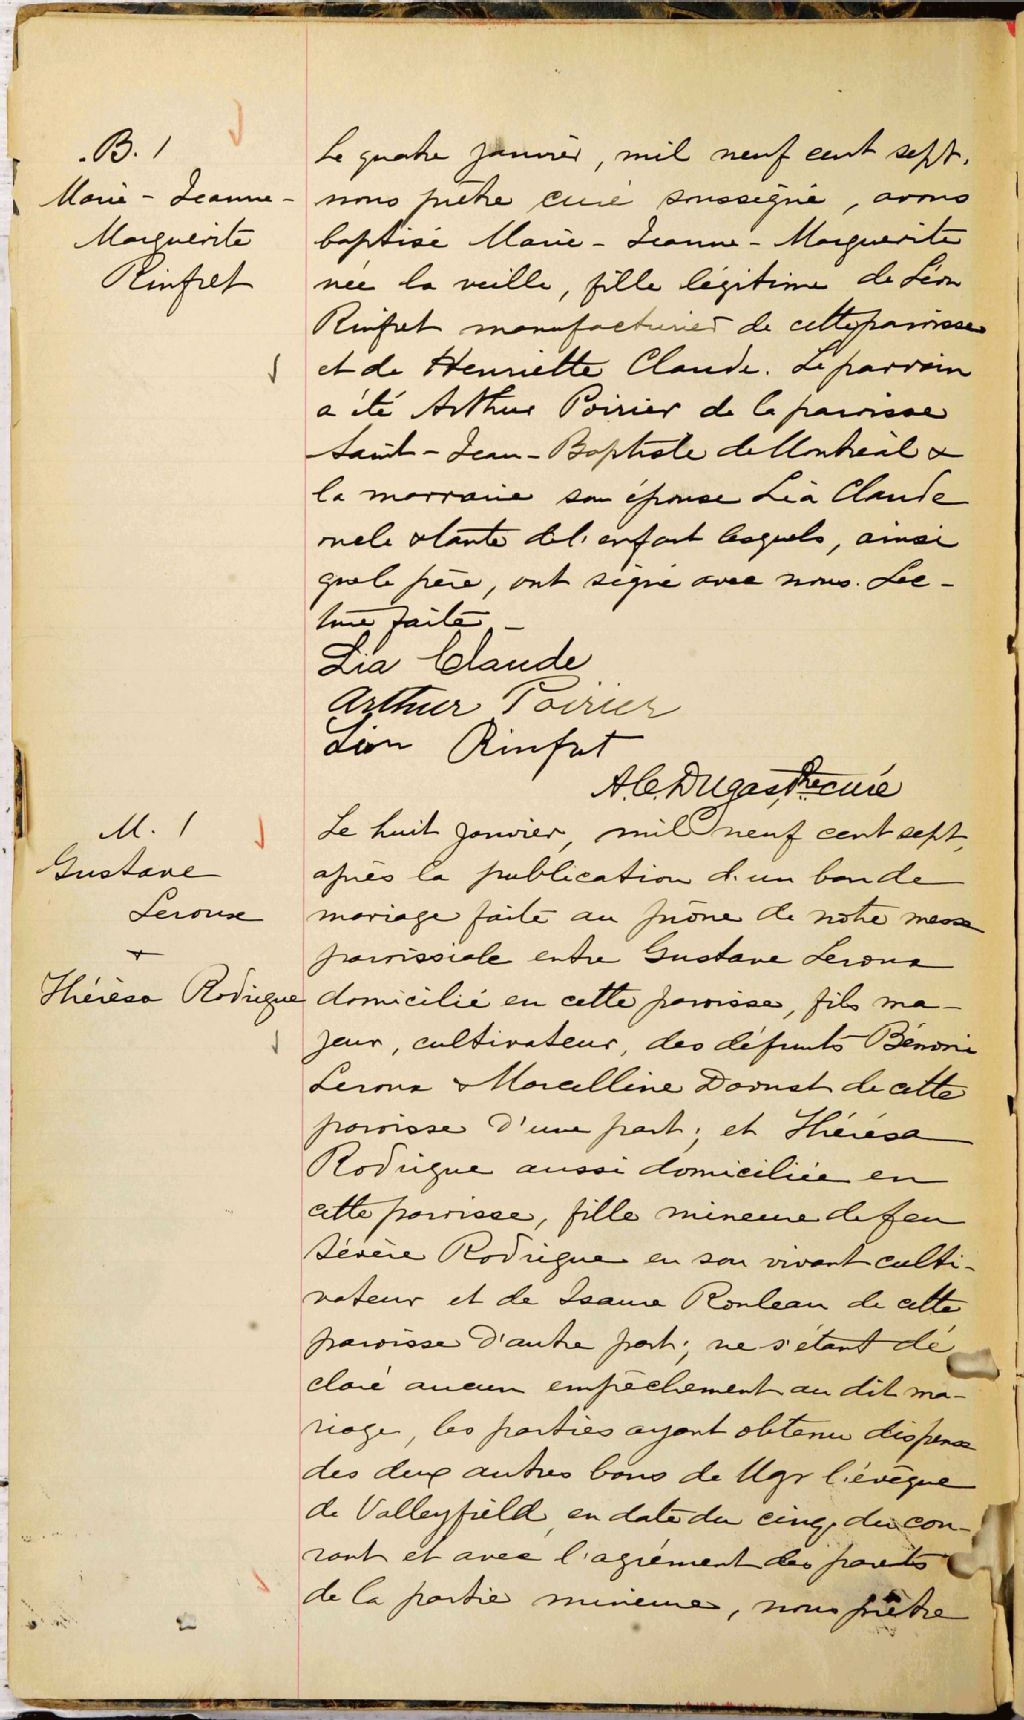 B. 1
Marie - Jeanne -
Marguerite
Rinfret
Le quatre janvier, mil neuf cent sept,
nous prêtre curé soussigné, avons
baptisé Marie - Jeanne - Marguerite
née la veille, fille légitime de Léon
Rinfret manufacturier de cette paroisse
et de Henriette Claude. Le parrain
a été Arthur Poirier de la paroisse
Saint - Jean - Baptiste de Montréal &
la marraine son épouse Lia Claude
oncle & tante de l'enfant lesquels, ainsi
que le père, ont signé avec nous. Lec -
ture faite -
Lia Claude
Arthur Poirier
Léon Rinfret
A. C. Dugas, Ptre curé
M. 1
Gustave
Leroux
+
Thérèsa Rodrigue
Le huit janvier, mil neuf cent sept,
après la publication d'un ban de
mariage faite au prône de notre messe
paroissiale entre Gustave Leroux
domicilié en cette paroisse, fils ma -
jeur, cultivateur, des défunts Bénoni
Leroux & Marcelline Daoust de cette
paroisse d'une part; et Thérésa
Rodrigue aussi domiciliée en
cette paroisse, fille mineure de feu
Sévère Rodrigue en son vivant culti -
vateur et de Isaure Rouleau de cette
paroisse d'autre part; ne s'étant dé
claré aucun empêchement au dit ma -
riage, les parties ayant obtenu dispense
des deux autres bans de Mgr l'évêque
de Valleyfield, en date du cinq du cou -
rant et avec l'agrément des parents
de la partie mineure, nous prêtre